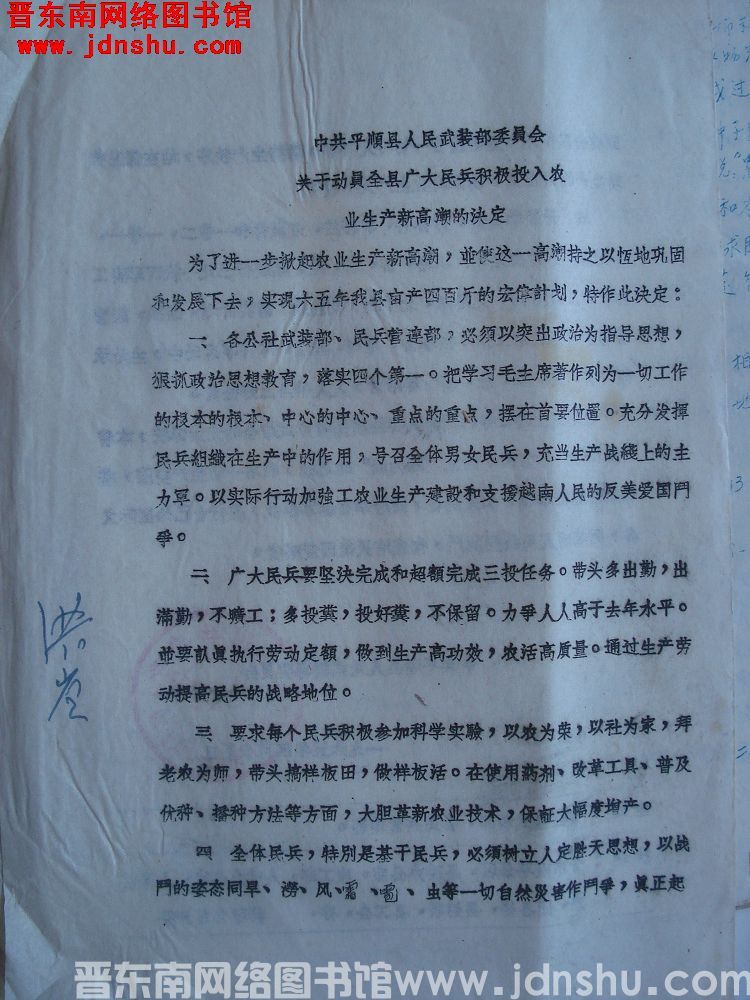 晋东南网络图书馆
www.jdnshu.com
中共平順县人民武装部委員会
关于动員全县广大民兵积极投入农
业生产新高潮的决定
为了进一步掀起农业生产新高潮，並使这一高潮持之以恆地巩固
和发展下去，实現六五年我县亩产四百斤的宏偉計划，特作此决定：
一、各公社武装部、民兵营連部，必須以突出政治为指导思想，
狠抓政治思想教育，落实四个第一。把学习毛主席著作列为一切工作
的根本的根本、中心的中心、重点的重点，摆在首要位置。充分发揮
民兵組織在生产中的作用，号召全体男女民兵，充当生产战綫上的主
力軍。以实际行动加強工农业生产建設和支援越南人民的反美爱国鬥
爭。
二、广大民兵要坚决完成和超額完成三投任务。带头多出勤，出
滿勤，不曠工；多投糞，投好糞，不保留。力爭人人高于去年水平。
並要認眞执行劳动定額，做到生产高功效，农活高质量。通过生产劳
动提高民兵的战略地位。
三、要求每个民兵积极参加科学实驗，以农为荣，以社为家，拜
老农为师，带头搞样板田，做样板活。在使用葯剂、改革工具、普及
优种、播种方法等方面，大胆革新农业技术，保証大幅度增产。
四 全体民兵，特別是基干民兵，必須树立人定胜天思想，以战
鬥的姿态同旱、澇、风、霜、雹、虫等一切自然災害作鬥爭，眞正起
晋东南网络图书馆www.jdnshu.com